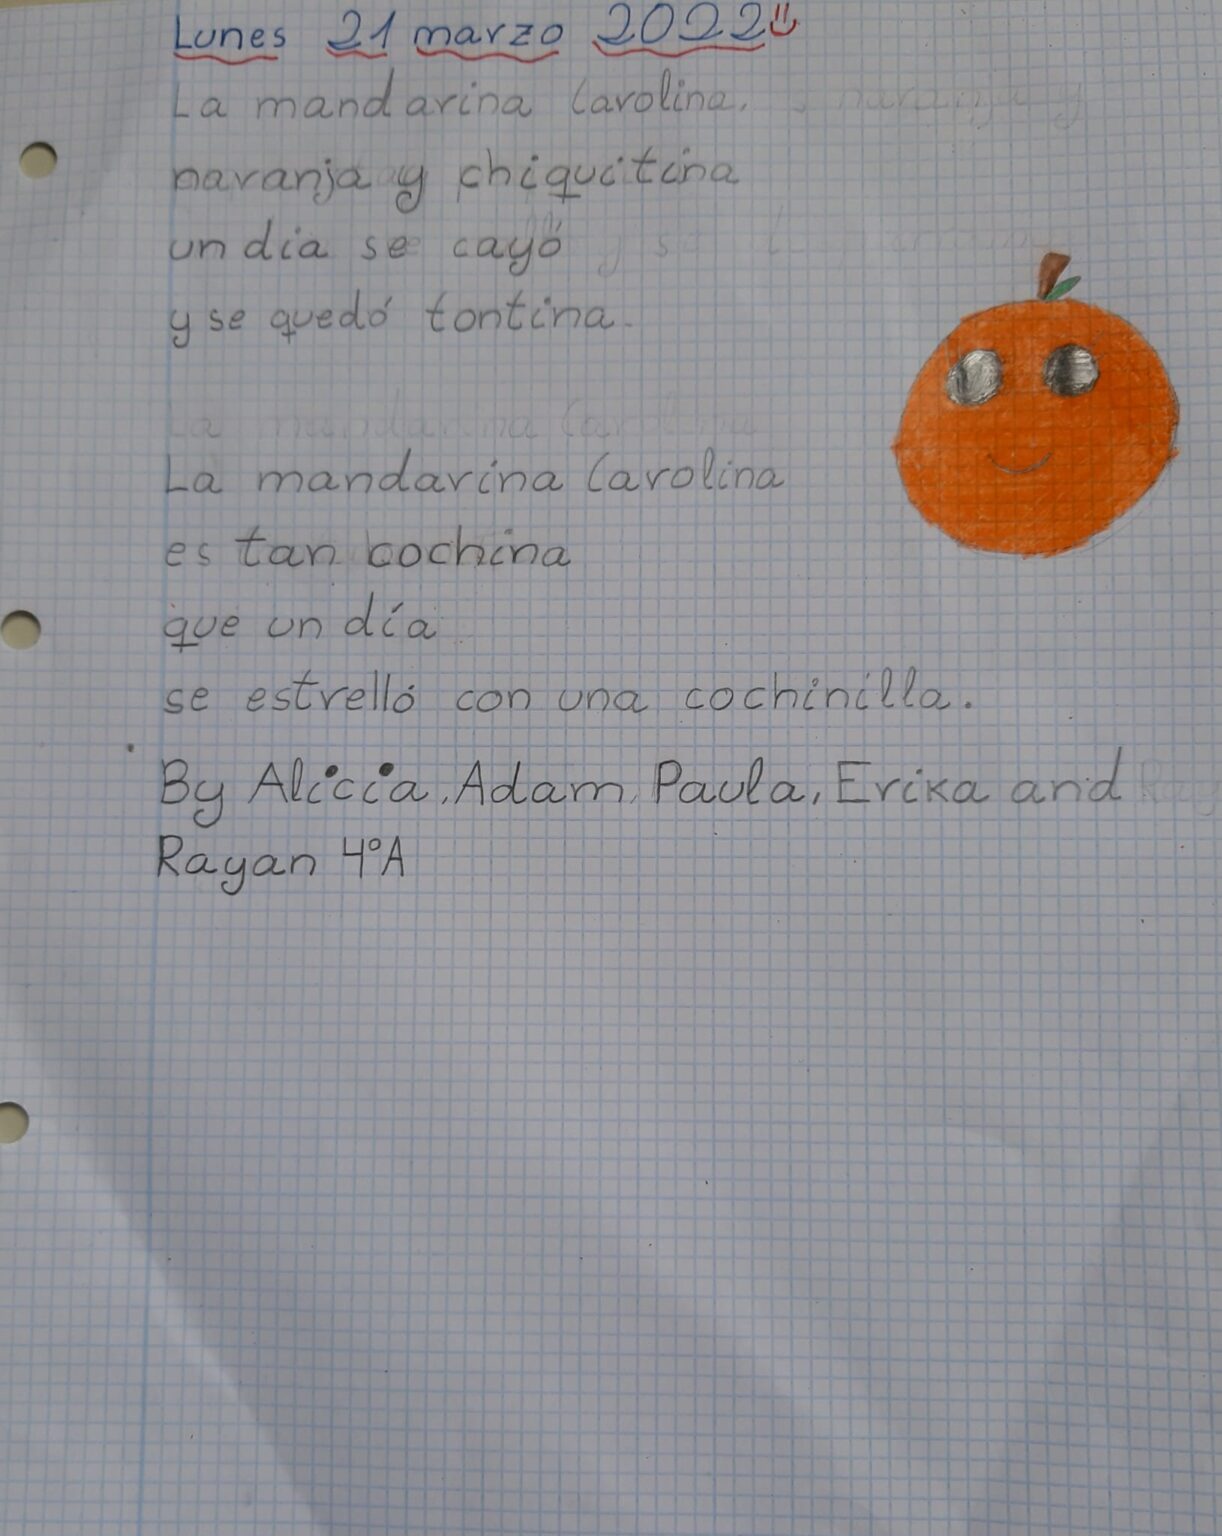 Lunes 21 marzo 2022
La mandarina Carolina,
naranja y chiquitina
un dia se cayó
y se quedó tontina.
La mandarina Carolina
es tan cochina
que un día
se estrelló con una cochinilla.
By Alicia, Adam, Paula, Erika and
Rayan 4ºA